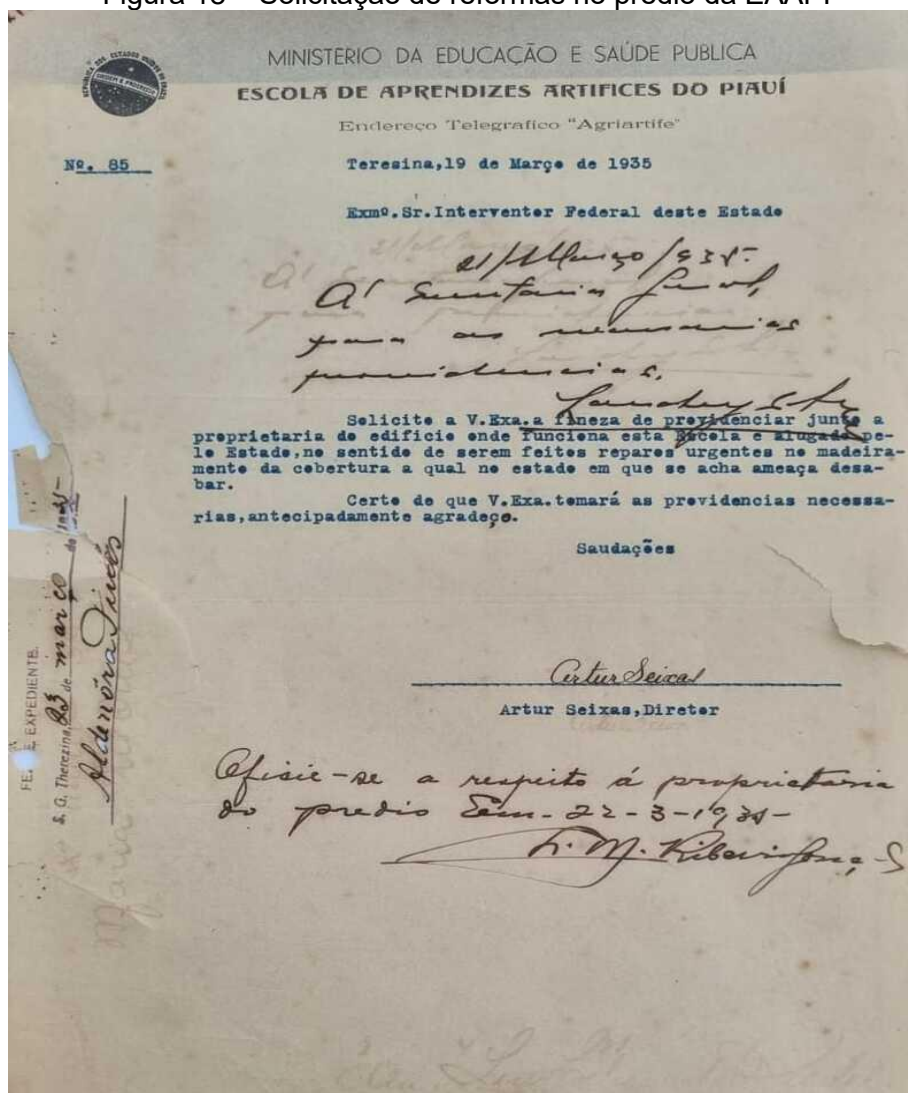 MINISTERIO DA EDUCAÇÃO E SAÚDE PUBLICA
ESCOLA DE APRENDIZES ARTIFICES DO PIAUÍ
Endereço Telegrafico "Agriartife"
Nº. 85
Teresina,19 de Março de 1935
Exmº.Sr.Interventor Federal deste Estado
21/Março/935-
A' Secretaria Geral,
para as necessarias
providencias.
Solicito a V.Exa.a fineza de providenciar junto a
proprietaria do edificio onde funciona esta Escola e alugado pe-
lo Estado,no sentido de serem feitos reparos urgentes no madeira-
mento da cobertura a qual no estado em que se acha ameaça desa-
bar.
Certo de que V.Exa.tomará as providencias necessa-
rias,antecipadamente agradeço.
Saudações
Artur Seixas
Artur Seixas,Diretor
Oficie-se a respeito á proprietaria
do predio Em- 22-3-1935-
EXPEDIENTE.
S. G. Therezina, 23 de março de